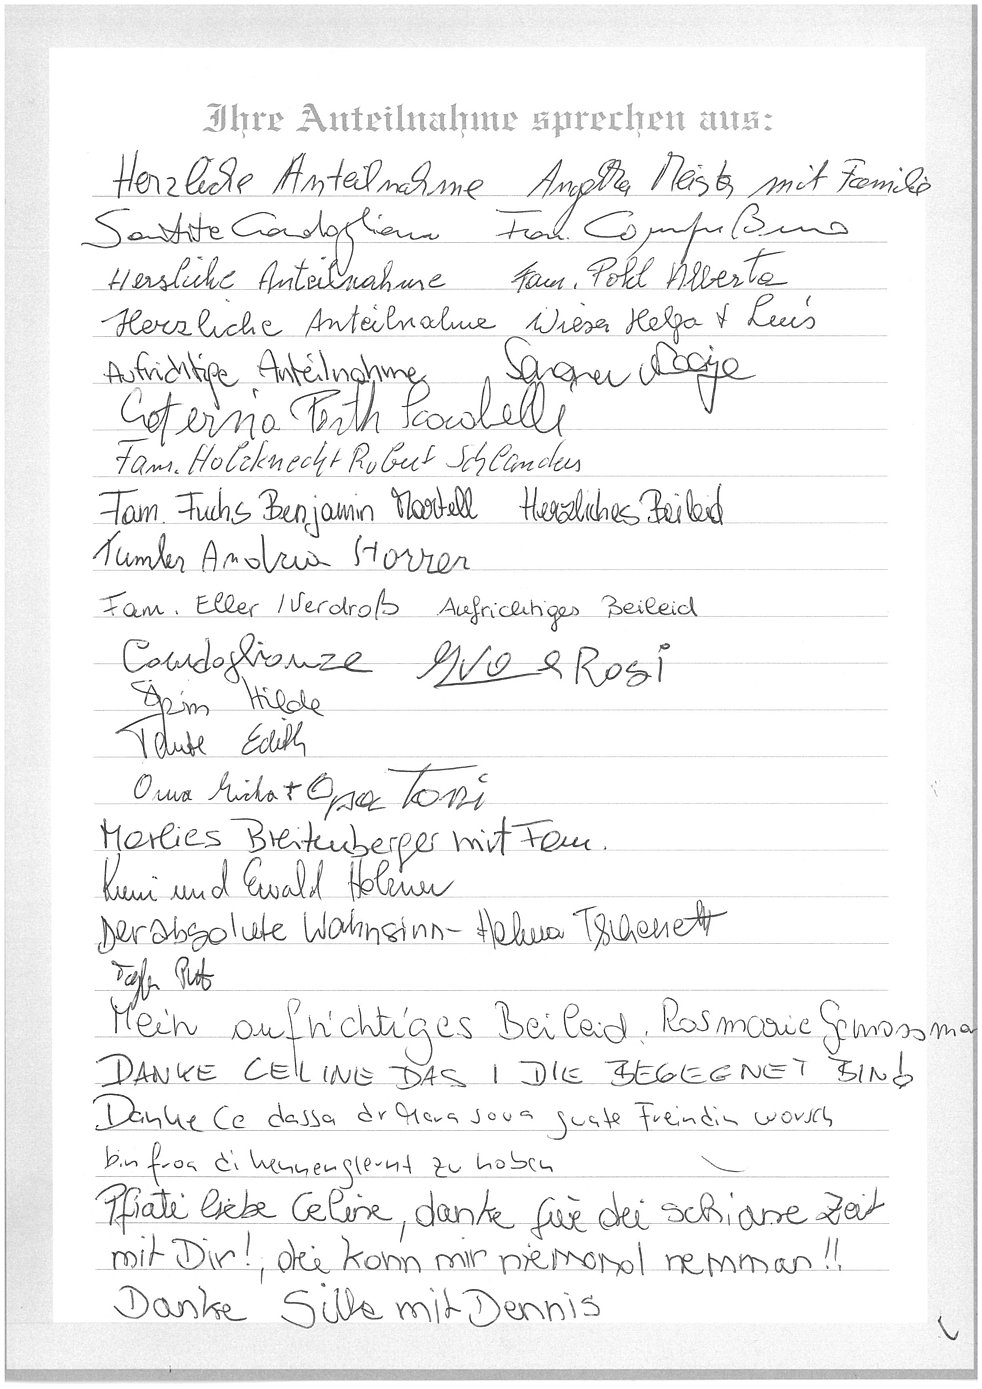 Ihre Anteilnahme sprechen aus:
Herzliche Anteilnahme Angelika Meister mit Familie
Sentite Condoglianze Fam.
Herzliche Anteilnahme Fam. Pohl Alberta
Herzliche Anteilnahme Wieser Helga + Luis
Aufrichtige Anteilnahme
Caterina
Fam. Holzknecht Robert Schlanders
Fam. Fuchs Benjamin Martell Herzliches Beileid
Tumler Andrea
Fam. Eller / Verdroß Aufrichtiges Beileid
Condoglianze Ivo & Rosi
Hilde
Tante Edith
Oma + Opa Toni
Marlies Breitenberger mit Fam.
und Ewald Holzner
Der absolute Wahnsinn- Tschenett
Mein aufrichtiges Beileid. Rosmarie
DANKE CELINE DAS I DIE BEGEGNET BIN!
Danke Ce dassa dr Mara sova guate Freindin worsch
bin froa di kennenglernt zu hoben
Pfiati liebe Celine, danke für dei schiane Zeit
mit Dir!, dei konn mir niemand nemman!!
Danke Silke mit Dennis